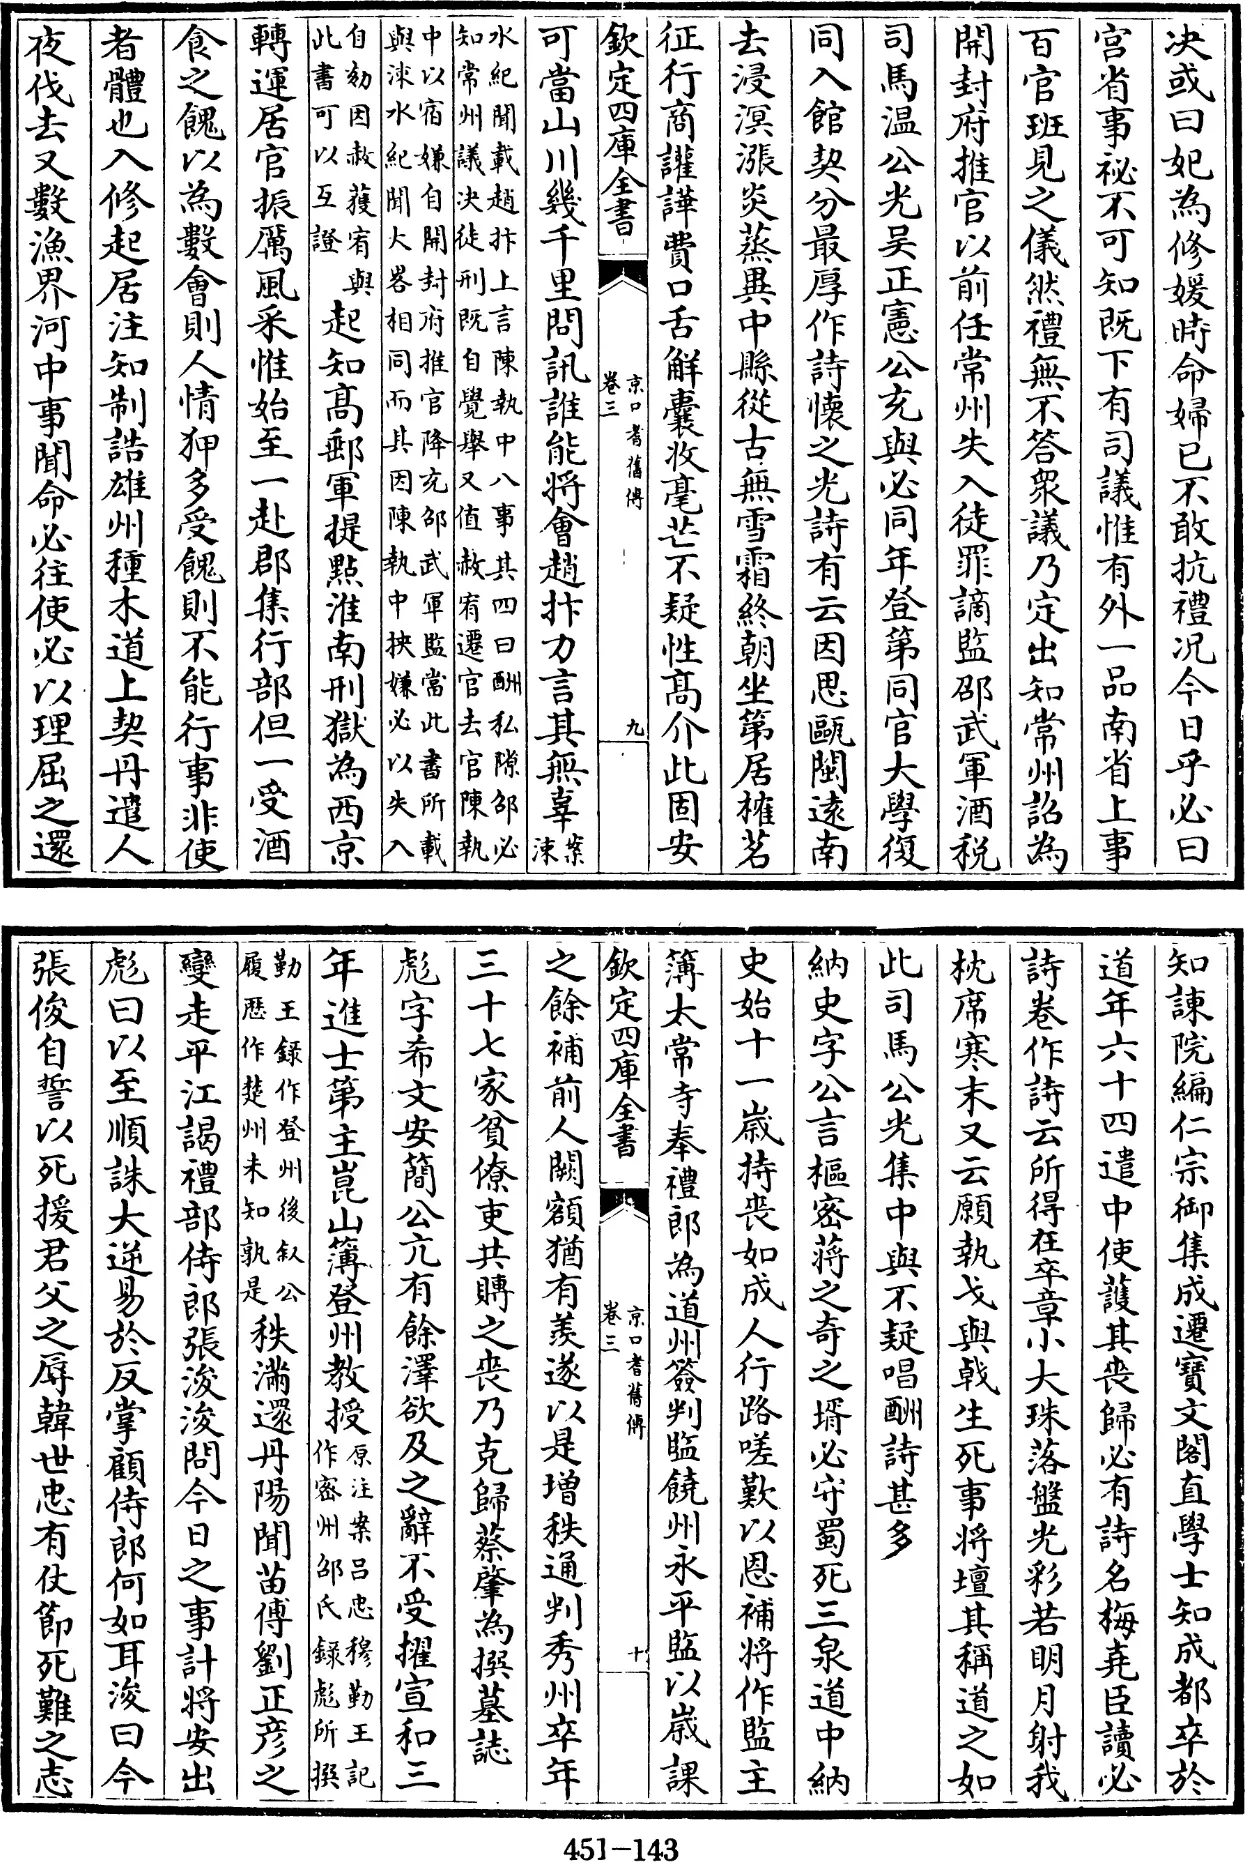 决或曰妃為修媛時命婦已不敢抗禮况今日乎必曰
宫省事祕不可知既下有司議惟有外一品南省上事
百官班見之儀然禮無不答衆議乃定出知常州詔為
開封府推官以前任常州失入徒罪謫監邵武軍酒税
司馬温公光吴正憲公充與必同年登第同官大學復
同入館契分最厚作詩懷之光詩有云因思甌閩逺南
去浸溟漲炎蒸異中縣從古無雪霜終朝坐第居榷茗
征行商讙譁費口舌觧囊收毫芒不疑性髙介此固安
欽定四庫全書
京口耆舊傳
卷三
九
可當山川幾千里問訊誰能將會趙抃力言其無辜案涑
水紀聞載趙抃上言陳執中八事其四曰酬私隙邵必
知常州議決徒刑既自覺舉又值赦宥遷官去官陳執
中以宿嫌自開封府推官降充邵武軍監當此書所載
與涑水紀聞大畧相同而其因陳執中挾嫌必以失入
自劾因赦獲宥與
此書可以互證
起知髙郵軍提點淮南刑獄為西京
轉運居官振厲風采惟始至一赴郡集行部但一受酒
食之餽以為數會則人情狎多受餽則不能行事非使
者體也入修起居注知制誥雄州種木道上契丹遣人
夜伐去又數漁界河中事聞命必往使必以理屈之還
知諫院編仁宗御集成遷寶文閣直學士知成都卒於
道年六十四遣中使護其喪歸必有詩名梅堯臣讀必
詩卷作詩云所得在卒章小大珠落盤光彩若明月射我
枕席寒末又云願執戈與戟生死事將壇其稱道之如
此司馬公光集中與不疑唱酬詩甚多
納史字公言樞密蔣之奇之壻必守蜀死三泉道中納
史始十一嵗持喪如成人行路嗟歎以恩補將作監主
簿太常寺奉禮郎為道州簽判監饒州永平監以嵗課
欽定四庫全書
京口耆舊傳
卷三
十
之餘補前人闕額猶有羨遂以是增秩通判秀州卒年
三十七家貧僚吏共賻之喪乃克歸蔡肇為撰墓誌
彪字希文安簡公亢有餘澤欲及之辭不受擢宣和三
年進士第主崑山簿登州教授
原注案吕忠穆勤王記
作密州邵氏録彪所撰
勤王録作登州後叙公
履歴作楚州未知孰是
秩滿還丹陽聞苗傅劉正彦之
變走平江謁禮部侍郎張浚浚問今日之事計將安出
彪曰以至順誅大逆易於反掌顧侍郎何如耳浚曰今
張俊自誓以死援君父之辱韓世忠有仗節死難之志
451-143